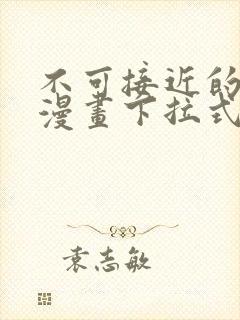 不可接近的
漫畫下拉式
袁志敏